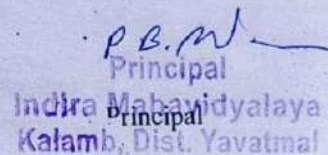 P.B.
Principal
Indira Mahavidyalaya
Principal
Kalamb, Dist. Yavatmal